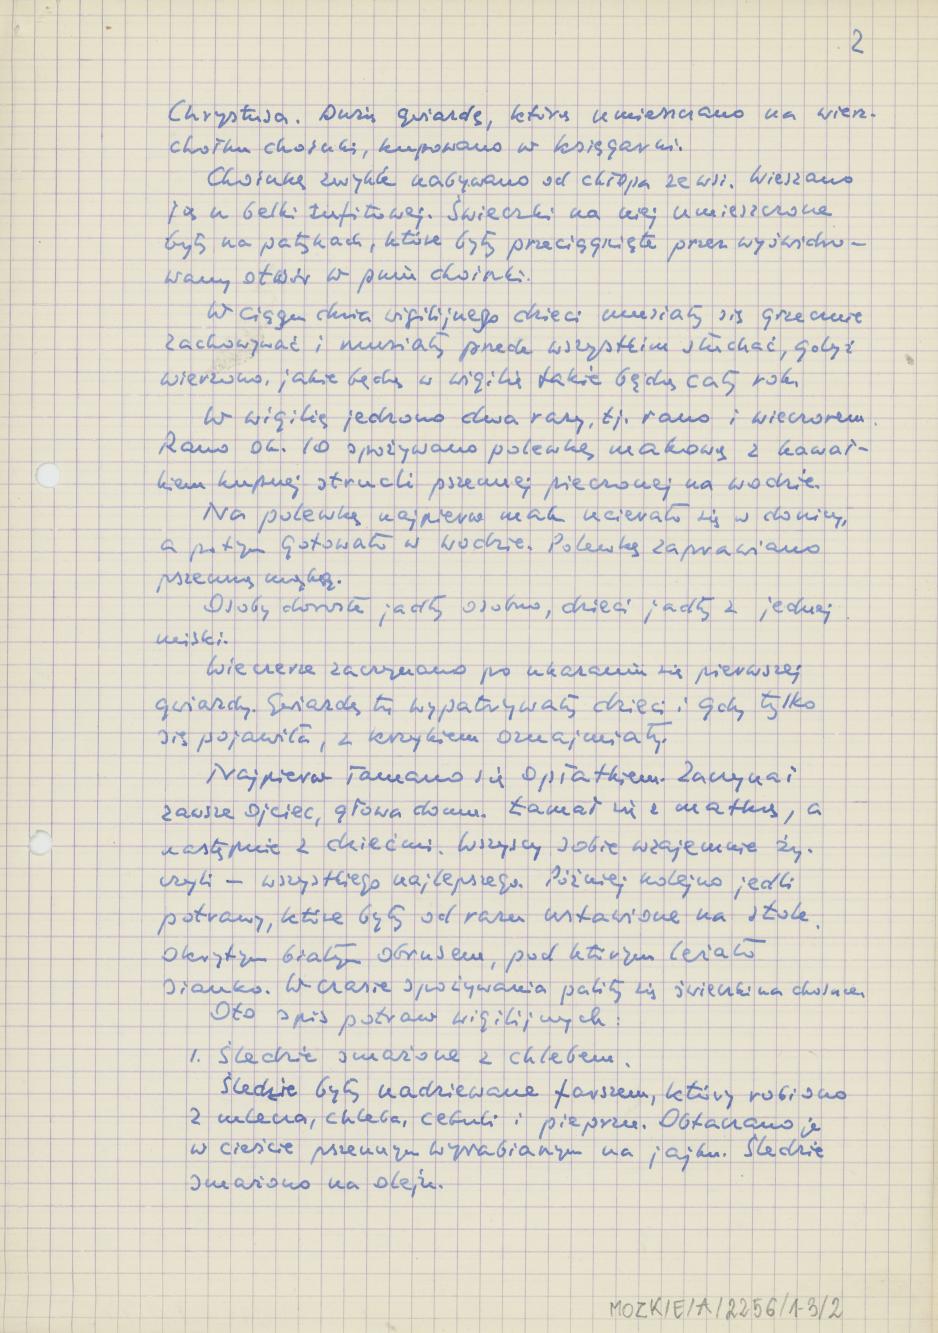 2
Chrystusa. Dużą gwiazdę, którą umieszczano na wierz-
chołku choinki, kupowano w księgarni.
Choinkę zwykle nabywano od chłopa ze wsi. Wieszano
ją u belki sufitowej. Świeczki na niej umieszczone
były na patykach, które były przeciągnięte przez wyświdro-
wany otwór w pniu choinki.
W ciągu dnia wigilijnego dzieci musiały się grzecznie
zachowywać i musiały przede wszystkim słuchać, gdyż
wierzono, jakie będą w wigilię takie będą cały rok.
W wigilię jedzono dwa razy, tj. rano i wieczorem.
Rano ok. 10 spożywano polewkę makową z kawał-
kiem kupnej strucli pszennej pieczonej na wodzie.
Na polewkę najpierw mak ucierało się w donicy,
a potym gotowało w wodzie. Polewkę zaprawiano
pszenną mąką.
Osoby dorosłe jadły osobno, dzieci jadły z jednej
miski.
Wieczerze zaczynano po ukazaniu się pierwszej
gwiazdy. Gwiazdę tę wypatrywały dzieci i gdy tylko
się pojawiła, z krzykiem oznajmiały.
Najpierw łamano się opłatkiem. Zaczynał
zawsze ojciec, głowa domu. Łamał się z matką, a
następnie z dziećmi. Wszyscy sobie wzajemnie ży-
czyli – wszystkiego najlepszego. Później kolejno jedli
potrawy, które były od razu ustawione na stole,
okrytym białym obrusem, pod którym leżało
sianko. W czasie spożywania paliły się świeczki na choince
Oto spis potraw wigilijnych:
1. Śledzie smażone z chlebem.
Śledzie były nadziewane farszem, który robiono
z mlecza, chleba, cebuli i pieprzu. Obtaczano je
w cieście pszennym wyrabianym na jajku. Śledzie
smażono na oleju.
MOZK/E/A/2256/1-3/2